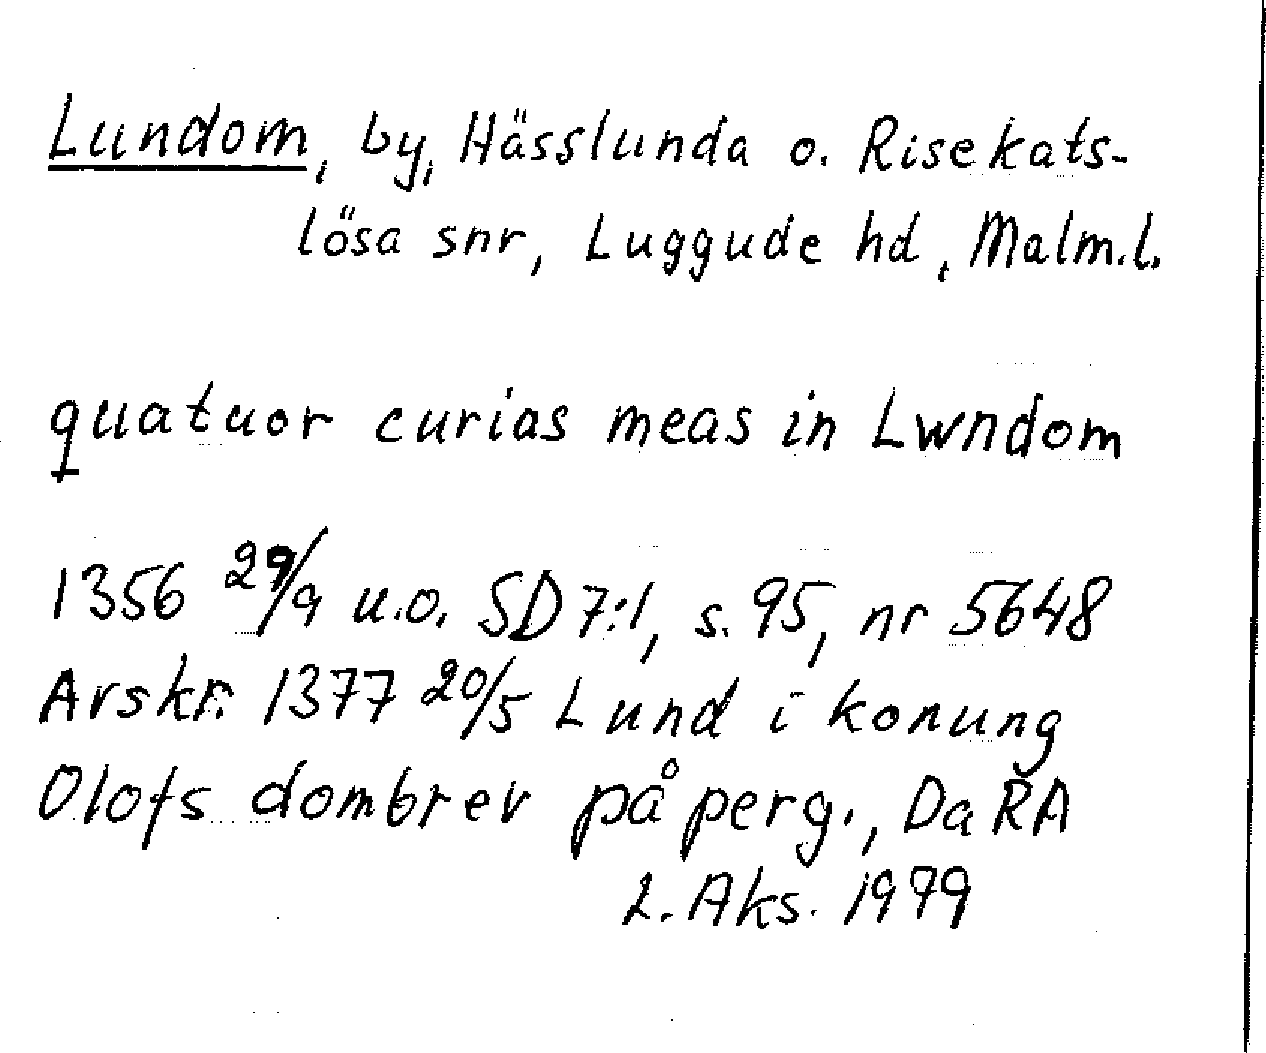 Lundom, by, Hässlunda o. Risekats-
lösa snr, Luggude hd, Malm.l.
quatuor curias meas in Lwndom
1356 29/9 u.o. SD 7:1, s. 95, nr 5648
Avskr. 1377 20/5 Lund i konung
Olofs dombrev på perg., DaRA
L. Aks. 1979